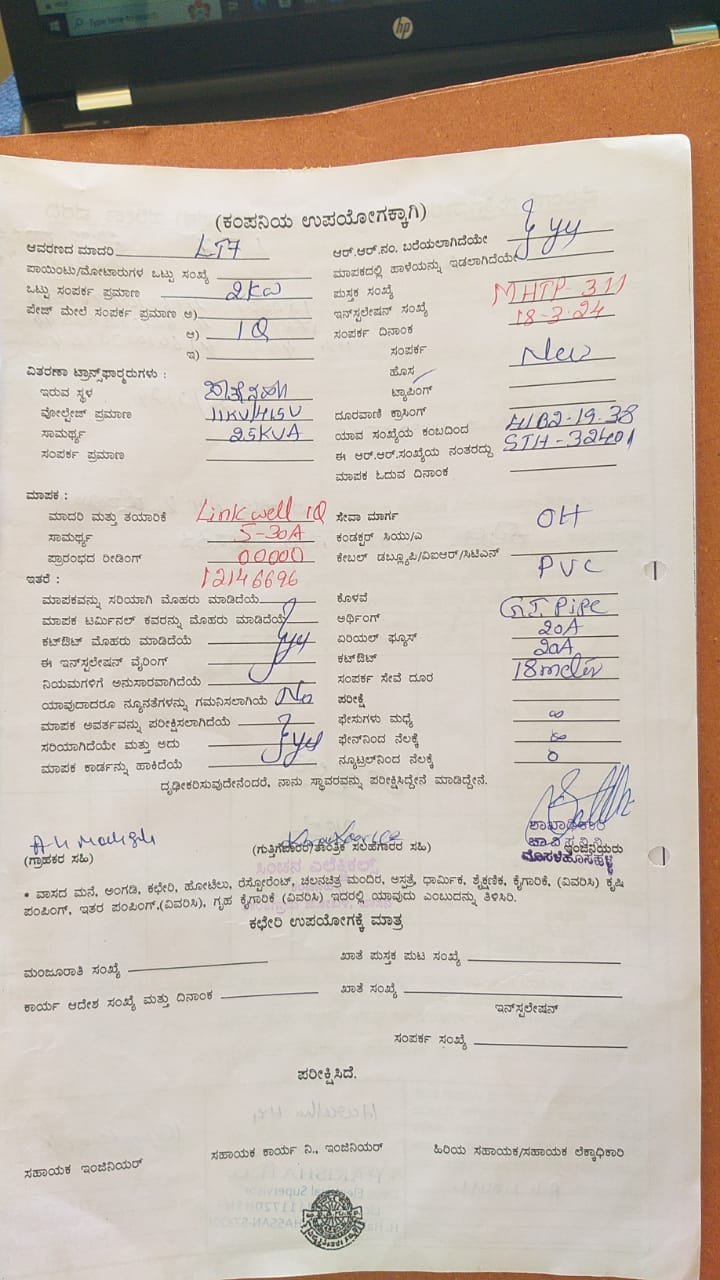 Type here to search
hp
(ಕಂಪನಿಯ ಉಪಯೋಗಕ್ಕಾಗಿ)
ಆವರಣದ ಮಾದರಿ LT7
ಪಾಯಿಂಟು/ಮೋಟಾರುಗಳ ಒಟ್ಟು ಸಂಖ್ಯೆ
ಒಟ್ಟು ಸಂಪರ್ಕ ಪ್ರಮಾಣ 2KW
ಪೇಜ್ ಮೇಲೆ ಸಂಪರ್ಕ ಪ್ರಮಾಣ ಅ)
ಆ) 1Q
ಇ)
ವಿತರಣಾ ಟ್ರಾನ್ಸ್‌ಫಾರ್‍ಮರುಗಳು :
ಇರುವ ಸ್ಥಳ
ವೋಲ್ಟೇಜ್ ಪ್ರಮಾಣ 11KV/415V
ಸಾಮರ್ಥ್ಯ 25KVA
ಸಂಪರ್ಕ ಪ್ರಮಾಣ
ಆರ್.ಆರ್.ನಂ. ಬರೆಯಲಾಗಿದೆಯೇ
ಮಾಪಕದಲ್ಲಿ ಹಾಳೆಯನ್ನು ಇಡಲಾಗಿದೆಯೇ yy
ಪುಸ್ತಕ ಸಂಖ್ಯೆ
ಇನ್‌ಸ್ಟಲೇಷನ್ ಸಂಖ್ಯೆ MHTP-311
ಸಂಪರ್ಕ ದಿನಾಂಕ 18-3-24
ಸಂಪರ್ಕ
ಹೊಸ New
ಟ್ಯಾಪಿಂಗ್
ದೂರವಾಣಿ ಕ್ರಾಸಿಂಗ್
ಯಾವ ಸಂಖ್ಯೆಯ ಕಂಬದಿಂದ HB2-19.38
ಈ ಆರ್.ಆರ್.ಸಂಖ್ಯೆಯ ನಂತರದ್ದು STH-32401
ಮಾಪಕ ಓದುವ ದಿನಾಂಕ
ಮಾಪಕ :
ಮಾದರಿ ಮತ್ತು ತಯಾರಿಕೆ Linkwell 1Q
ಸಾಮರ್ಥ್ಯ 5-30A
ಪ್ರಾರಂಭದ ರೀಡಿಂಗ್ 00000
ಇತರೆ : 12146696
ಮಾಪಕವನ್ನು ಸರಿಯಾಗಿ ಮೊಹರು ಮಾಡಿದೆಯೆ
ಮಾಪಕ ಟರ್ಮಿನಲ್ ಕವರನ್ನು ಮೊಹರು ಮಾಡಿದೆಯೆ
ಕಟ್‌ಔಟ್ ಮೊಹರು ಮಾಡಿದೆಯೆ yy
ಈ ಇನ್‌ಸ್ಟಲೇಷನ್ ವೈರಿಂಗ್
ನಿಯಮಗಳಿಗೆ ಅನುಸಾರವಾಗಿದೆಯೆ
ಯಾವುದಾದರೂ ನ್ಯೂನತೆಗಳನ್ನು ಗಮನಿಸಲಾಗಿಯೆ No
ಮಾಪಕ ಅವರ್ತವನ್ನು ಪರೀಕ್ಷಿಸಲಾಗಿದೆಯೆ
ಸರಿಯಾಗಿದೆಯೇ ಮತ್ತು ಅದು yy
ಮಾಪಕ ಕಾರ್ಡನ್ನು ಹಾಕಿದೆಯೆ
ಸೇವಾ ಮಾರ್ಗ OH
ಕಂಡಕ್ಟರ್ ಸಿಯು/ಎ
ಕೇಬಲ್ ಡಬ್ಲ್ಯೂಪಿ/ವಿಐಆರ್/ಸಿಟಿಎನ್ PVC
ಕೊಳವೆ
ಅರ್ಥಿಂಗ್ G.I. Pipe
ಏರಿಯಲ್ ಫ್ಯೂಸ್ 20A
ಕಟ್‌ಔಟ್ 20A
ಸಂಪರ್ಕ ಸೇವೆ ದೂರ 18meter
ಪರೀಕ್ಷೆ
ಫೇಸುಗಳು ಮಧ್ಯೆ ∞
ಫೇಸ್‌ನಿಂದ ನೆಲಕ್ಕೆ ∞
ನ್ಯೂಟ್ರಲ್‌ನಿಂದ ನೆಲಕ್ಕೆ 0
ದೃಢೀಕರಿಸುವುದೇನೆಂದರೆ, ನಾನು ಸ್ಥಾವರವನ್ನು ಪರೀಕ್ಷಿಸಿದ್ದೇನೆ ಮಾಡಿದ್ದೇನೆ.
(ಗ್ರಾಹಕರ ಸಹಿ)
(ಗುತ್ತಿಗೆದಾರರ/ತಾಂತ್ರಿಕ ಸಲಹೆಗಾರರ ಸಹಿ)
ಶಾಖಾಧಿಕಾರಿ
ಚಾ.ವಿ.ಸ.ನಿ.ನಿ ಇಂಜಿನಿಯರು
ಮೊಸಳೆಹೊಸಹಳ್ಳಿ
ಸಿಂಚನ ಎಲೆಕ್ಟ್ರಿಕಲ್ಸ್
* ವಾಸದ ಮನೆ, ಅಂಗಡಿ, ಕಛೇರಿ, ಹೋಟೆಲು, ರೆಸ್ಟೋರೆಂಟ್, ಚಲನಚಿತ್ರ ಮಂದಿರ, ಆಸ್ಪತ್ರೆ, ಧಾರ್ಮಿಕ, ಶೈಕ್ಷಣಿಕ, ಕೈಗಾರಿಕೆ, (ವಿವರಿಸಿ) ಕೃಷಿ
ಪಂಪಿಂಗ್, ಇತರ ಪಂಪಿಂಗ್,(ವಿವರಿಸಿ), ಗೃಹ ಕೈಗಾರಿಕೆ (ವಿವರಿಸಿ) ಇದರಲ್ಲಿ ಯಾವುದು ಎಂಬುದನ್ನು ತಿಳಿಸಿರಿ.
ಕಛೇರಿ ಉಪಯೋಗಕ್ಕೆ ಮಾತ್ರ
ಮಂಜೂರಾತಿ ಸಂಖ್ಯೆ
ಖಾತೆ ಪುಸ್ತಕ ಪುಟ ಸಂಖ್ಯೆ
ಕಾರ್ಯ ಆದೇಶ ಸಂಖ್ಯೆ ಮತ್ತು ದಿನಾಂಕ
ಖಾತೆ ಸಂಖ್ಯೆ
ಇನ್‌ಸ್ಟಲೇಷನ್
ಸಂಪರ್ಕ ಸಂಖ್ಯೆ
ಪರೀಕ್ಷಿಸಿದೆ.
ಸಹಾಯಕ ಇಂಜಿನಿಯರ್
ಸಹಾಯಕ ಕಾರ್ಯ ನಿ., ಇಂಜಿನಿಯರ್
ಹಿರಿಯ ಸಹಾಯಕ/ಸಹಾಯಕ ಲೆಕ್ಕಾಧಿಕಾರಿ